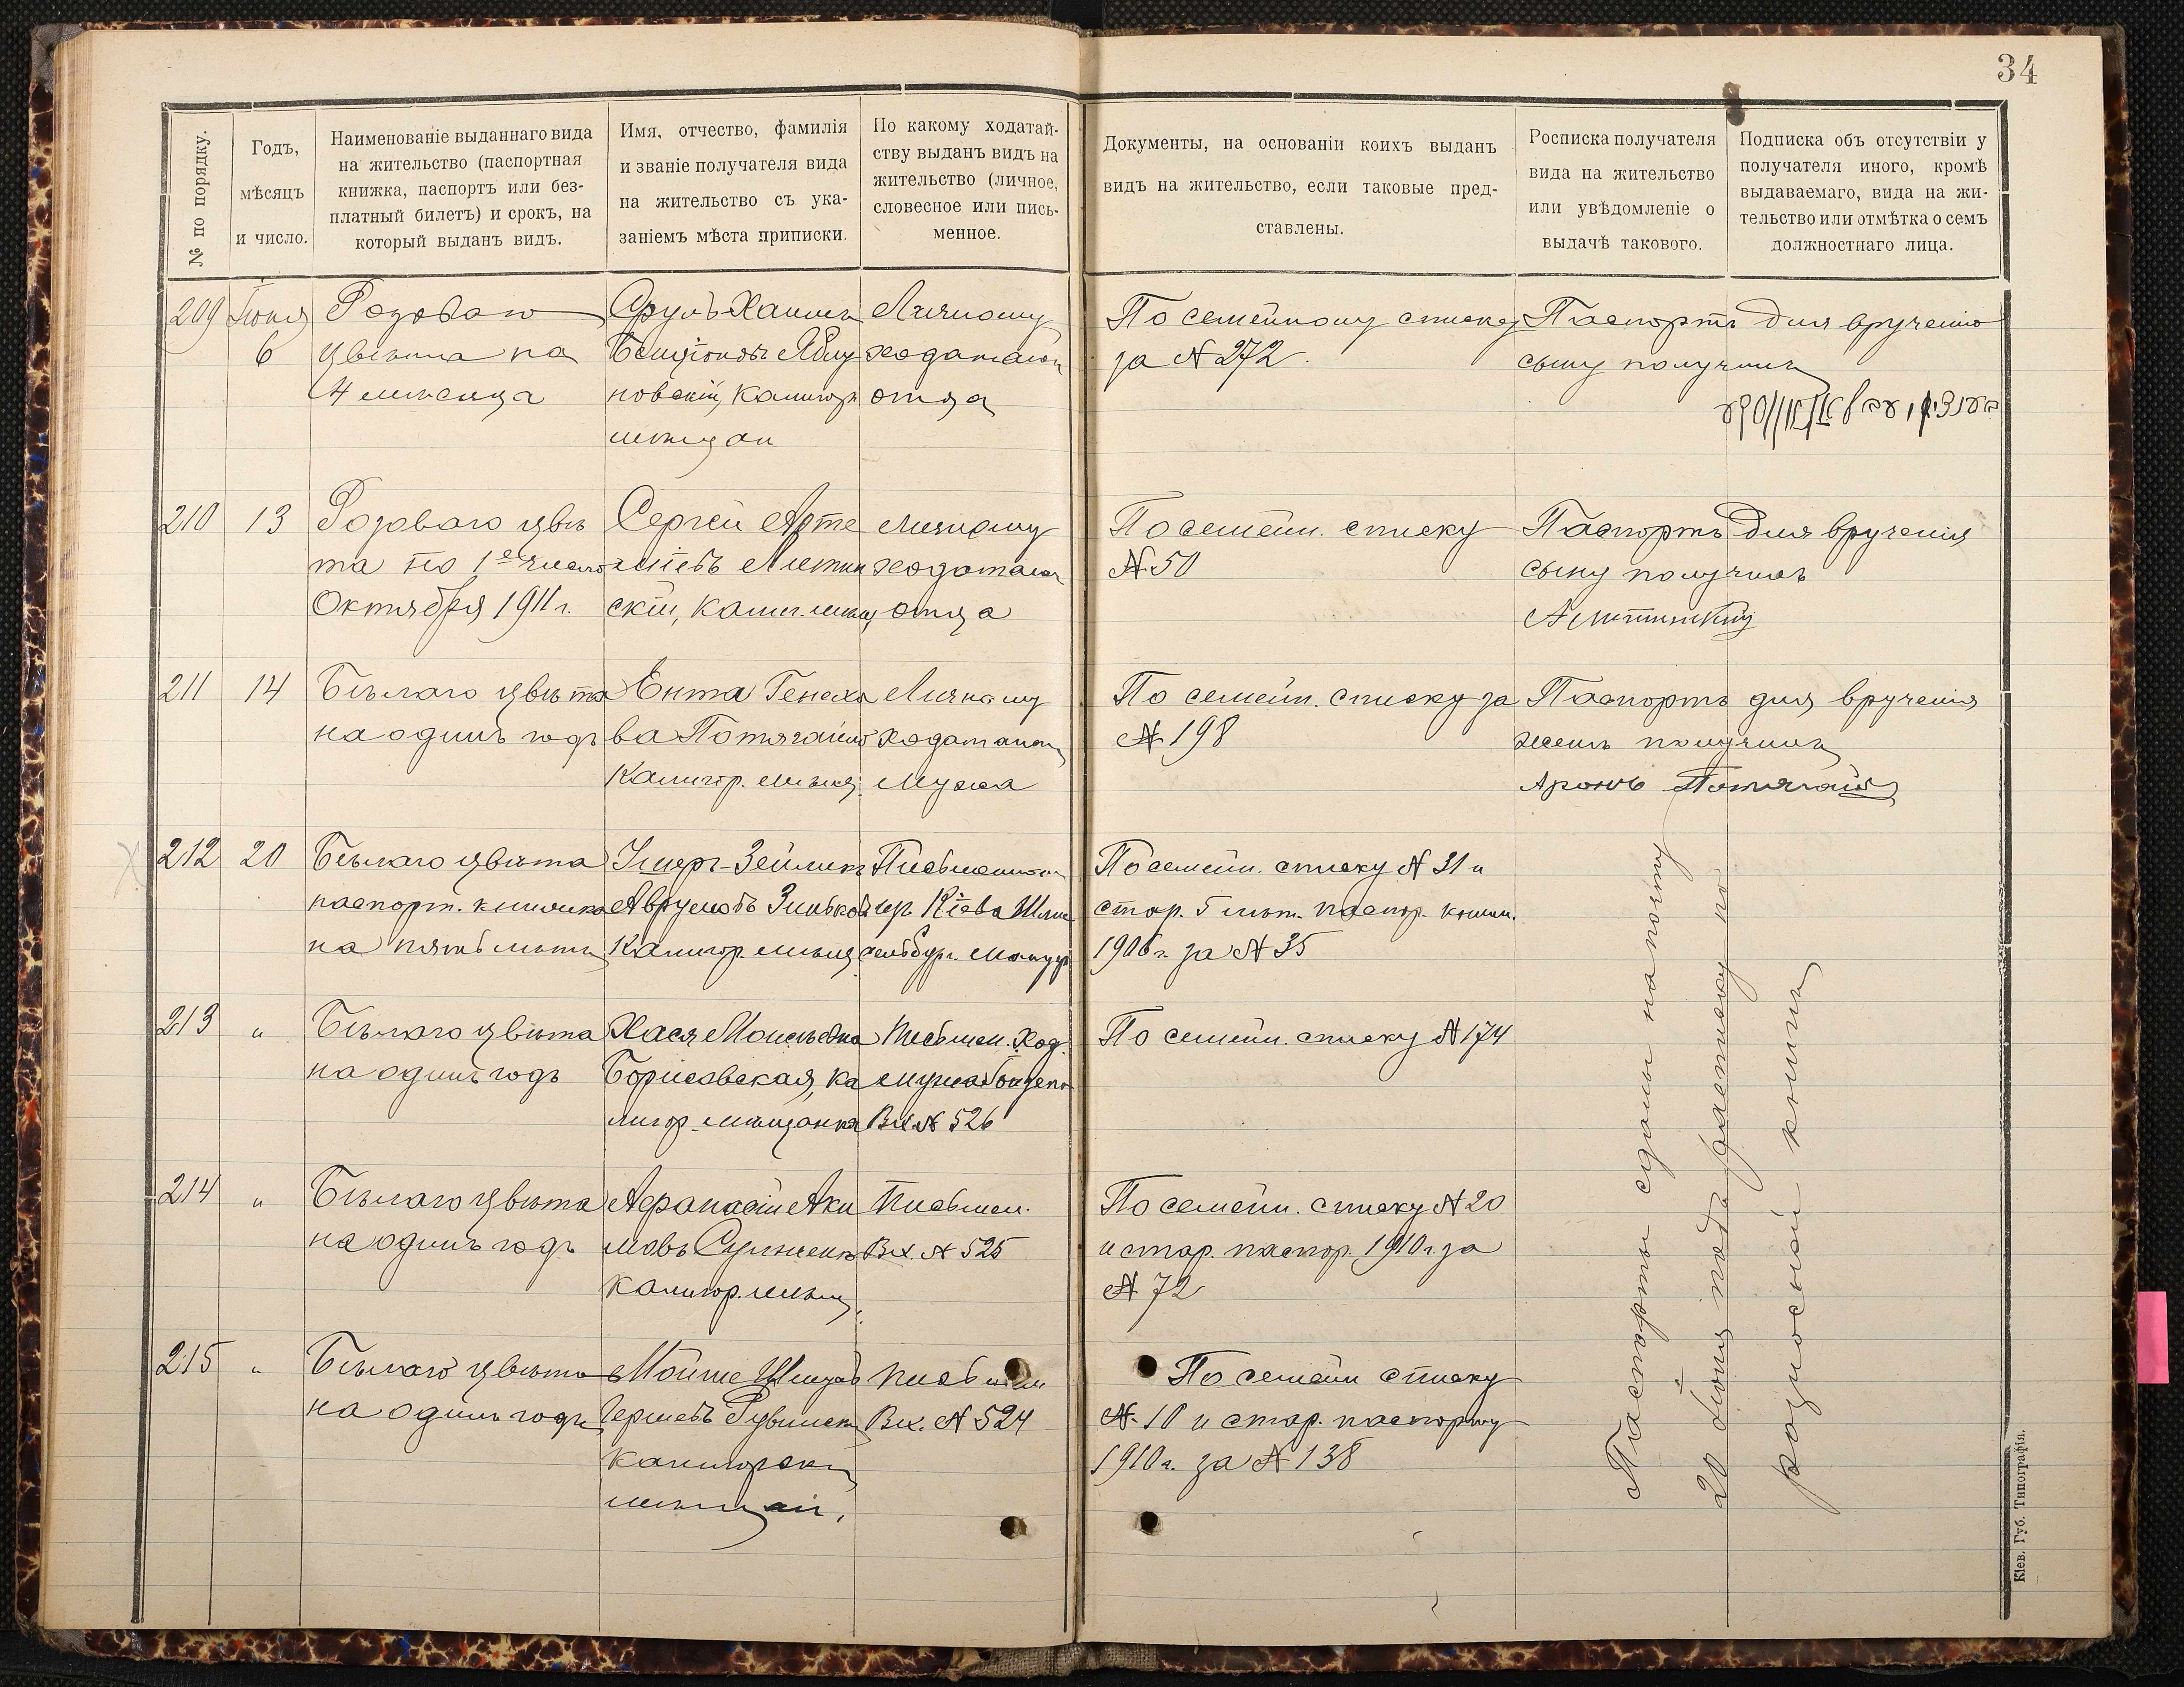 34
№ по порядку.
Годъ,
мѣсяцъ
и число.
Наименованіе выданнаго вида
на жительство (паспортная
книжка, паспортъ или без-
платный билетъ) и срокъ, на
который выданъ видъ.
Имя, отчество, фамилія
и званіе получателя вида
на жительство съ ука-
заніемъ мѣста приписки.
По какому ходатай-
ству выданъ видъ на
жительство (личное,
словесное или пись-
менное.
Документы, на основаніи коихъ выданъ
видъ на жительство, если таковые пред-
ставлены.
Росписка получателя
вида на жительство
или увѣдомленіе о
выдачѣ такового.
Подписка объ отсутствіи у
получателя иного, кромѣ
выдаваемаго, вида на жи-
тельство или отмѣтка о семъ
должностнаго лица.
209
Іюня
6
цвѣта на
4 мѣсяца
Сруль-Хаимъ
новскій, Калигор
мѣщан
Личному
отца
По семейному списку
за № 272.
Паспортъ для врученія
сыну получилъ
210
13
Розоваго цвѣ
та по 1е число
Октября 1911 г.
Сергей Арте
скій, Калиг. мѣщ
личному
отца
По семейн. списку
№ 50
Паспортъ для врученія
сыну получилъ
211
14
Бѣлаго цвѣта
на одинъ годъ
Ента Генехо
ва
Калигор. мѣщ.
Личному
мужа
По семейн. списку за
№ 198
Паспортъ для врученія
женѣ получилъ
Аронъ
212
20
Бѣлаго цвѣта
паспорт. книжка
на пять лѣтъ
Калигор. мѣщ
Кіева
По семейн. списку № 31 и
стар. 5 лѣт. паспор. книж.
1906 г. за № 35
213
"
Бѣлаго цвѣта
на одинъ годъ
Хася Моисѣевна
Борисовская, Ка
лигор. мѣщанка
Письмен. Ход.
мужа
Вх. № 526
По семейн. списку № 174
214
"
Бѣлаго цвѣта
на одинъ годъ
Афанасій Аки
мовъ
Калигор. мѣщ.
Письмен.
Вх. № 525
По семейн. списку № 20
и стар. паспор. 1910 г. за
№ 72
215
"
Бѣлаго цвѣта
на одинъ годъ
Мойше
Калигорскій
мѣщан.
Письмен
Вх. № 524
По семейн списку
№ 10 и стар. паспорту
1910 г. за № 138
Паспорты сданы на почту
20 Іюня подъ расписку по
разносной книгѣ
Кіев. Губ. Типографія.